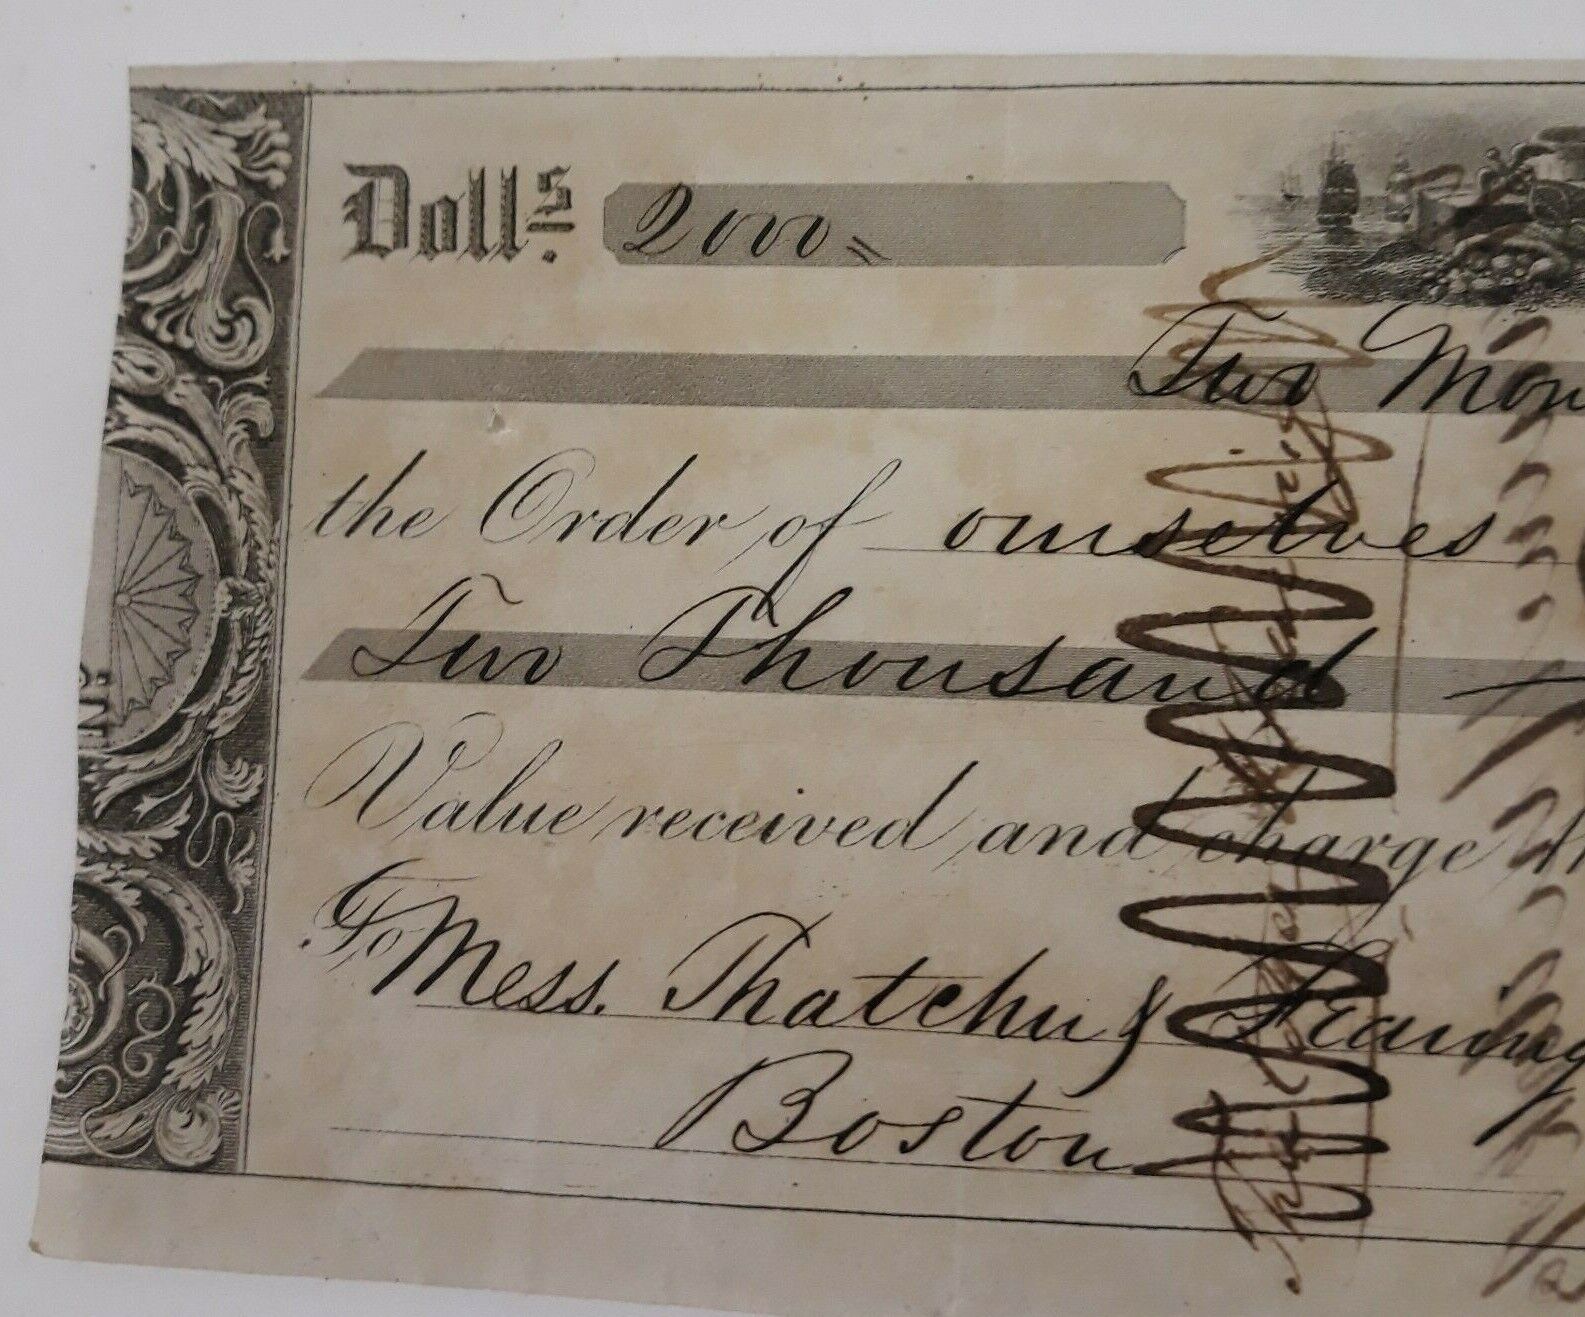 Doll.s 2000,,
Two Mon
the Order of ourselves
Two Thousand
Value received and charge th
To Mess. Thatcher & Fearing
Boston